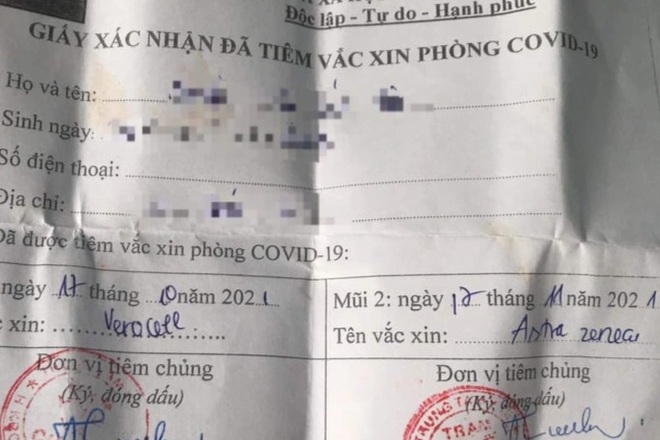 Độc lập - Tự do - Hạnh phúc
GIẤY XÁC NHẬN ĐÃ TIÊM VẮC XIN PHÒNG COVID-19
Họ và tên:
Sinh ngày:
Số điện thoại:
Địa chỉ:
Đã được tiêm vắc xin phòng COVID-19:
ngày 17 tháng 10 năm 2021
xin: Verocell
Đơn vị tiêm chủng
(Ký, đóng dấu)
Mũi 2: ngày 17 tháng 11 năm 2021
Tên vắc xin: Astra zeneca
Đơn vị tiêm chủng
(Ký, đóng dấu)
TRUNG T
TRẠM